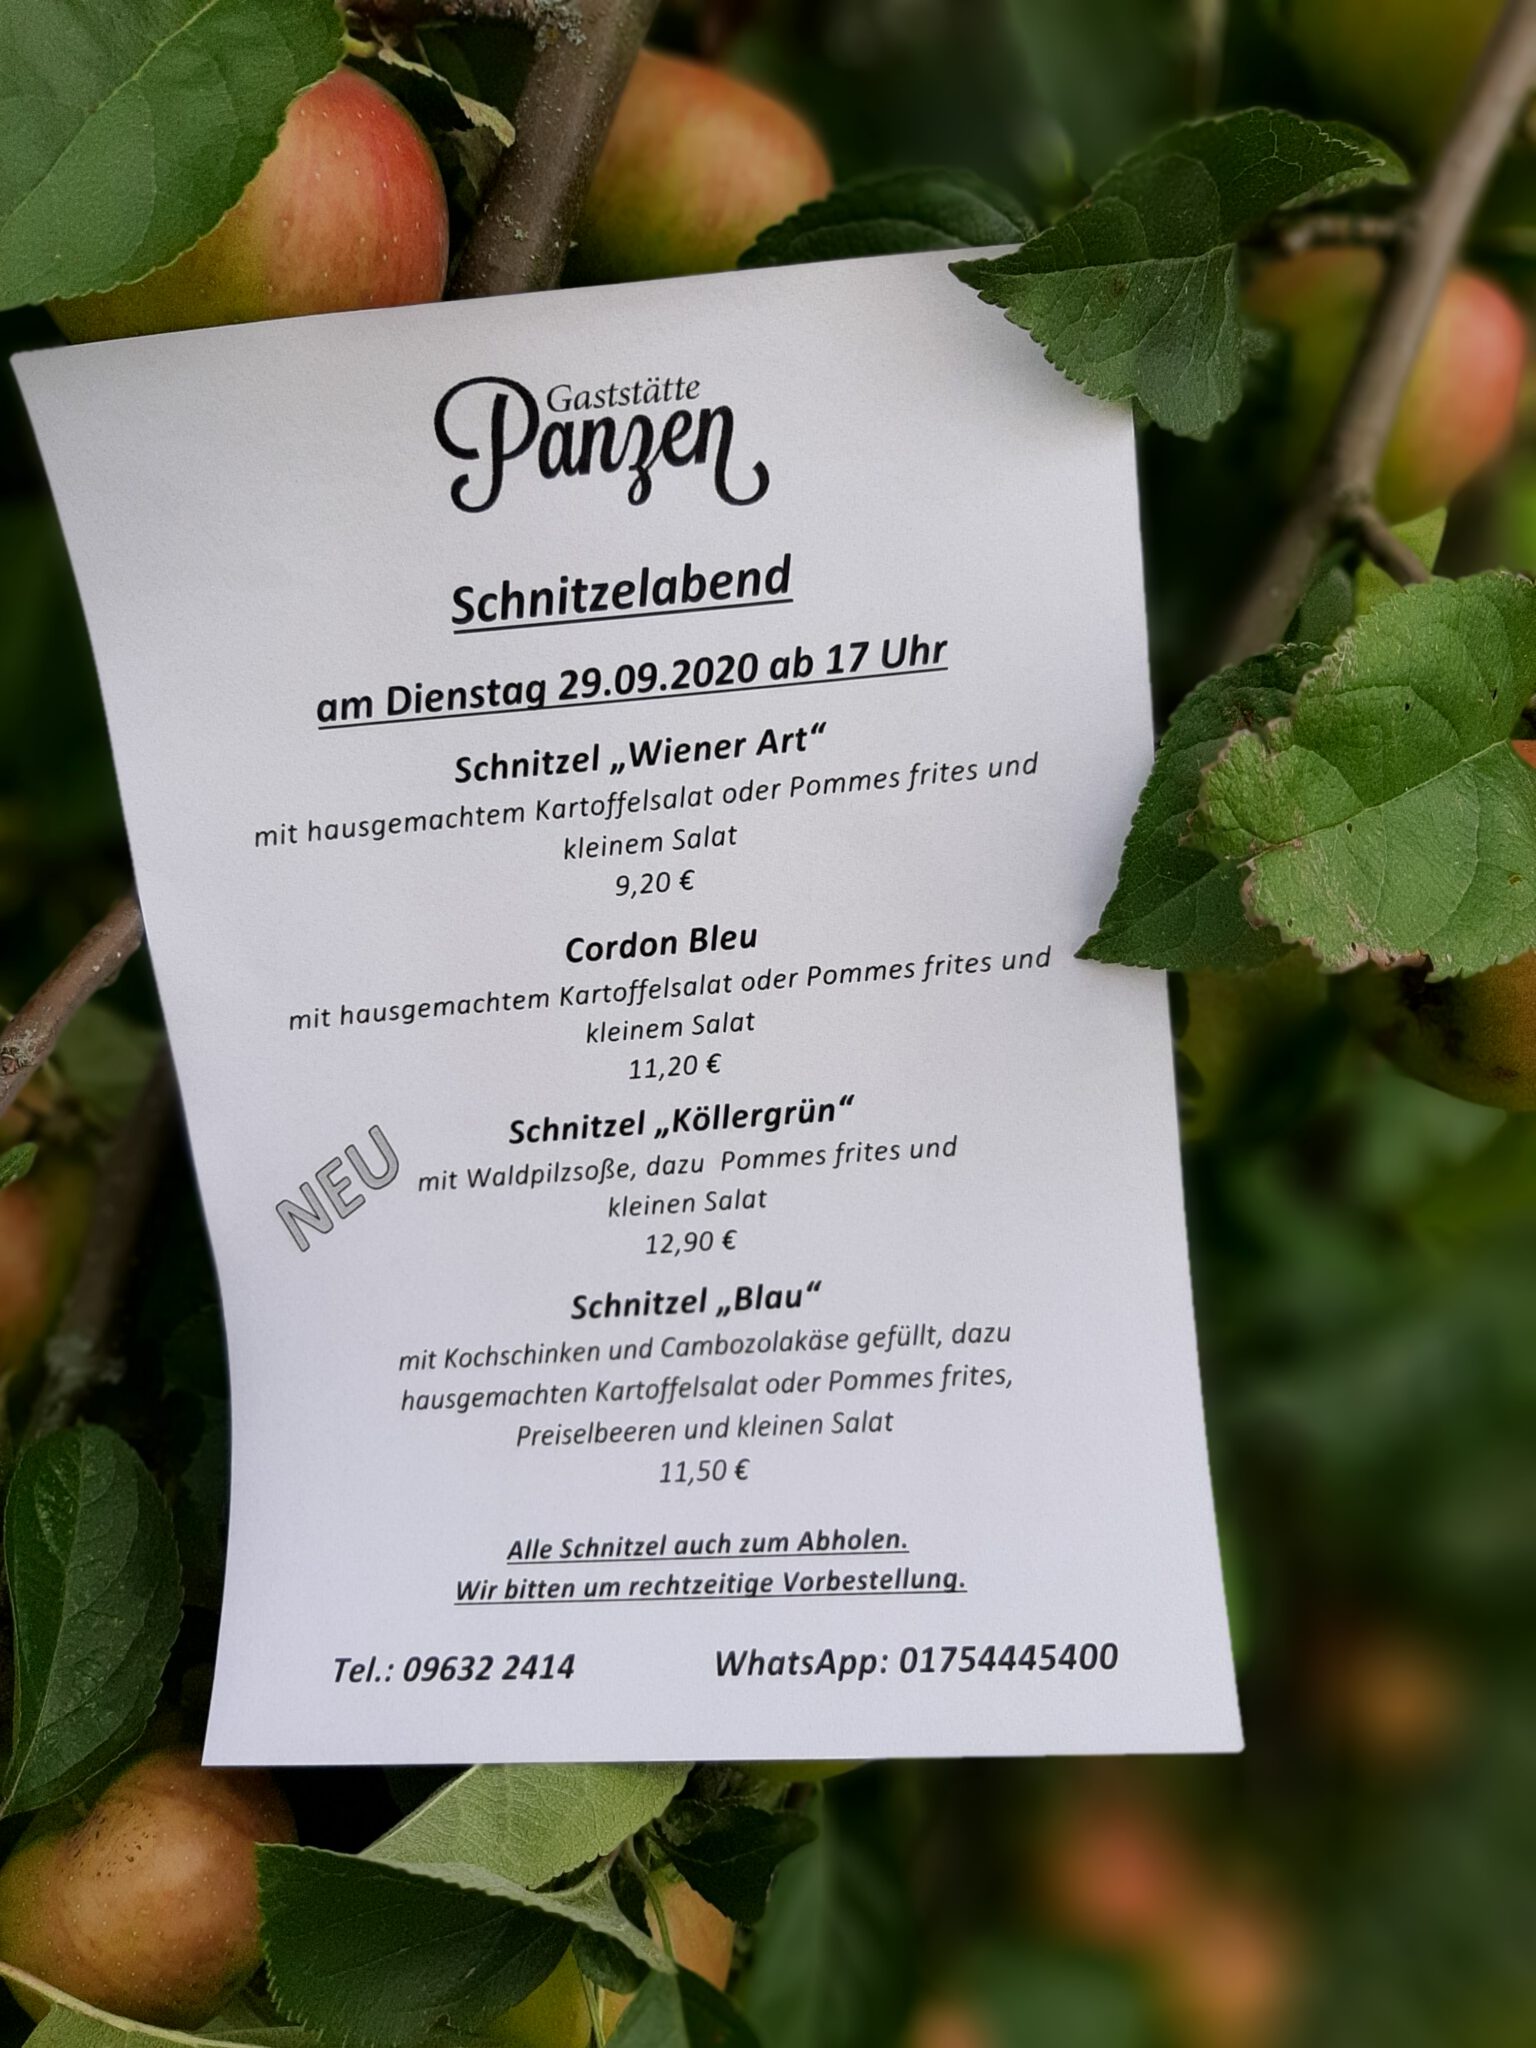 Gaststätte
Panzen
Schnitzelabend
am Dienstag 29.09.2020 ab 17 Uhr
Schnitzel „Wiener Art“
mit hausgemachtem Kartoffelsalat oder Pommes frites und
kleinem Salat
9,20 €
Cordon Bleu
mit hausgemachtem Kartoffelsalat oder Pommes frites und
kleinem Salat
11,20 €
NEU
Schnitzel „Köllergrün“
mit Waldpilzsoße, dazu Pommes frites und
kleinen Salat
12,90 €
Schnitzel „Blau“
mit Kochschinken und Cambozolakäse gefüllt, dazu
hausgemachten Kartoffelsalat oder Pommes frites,
Preiselbeeren und kleinen Salat
11,50 €
Alle Schnitzel auch zum Abholen.
Wir bitten um rechtzeitige Vorbestellung.
Tel.: 09632 2414 WhatsApp: 01754445400